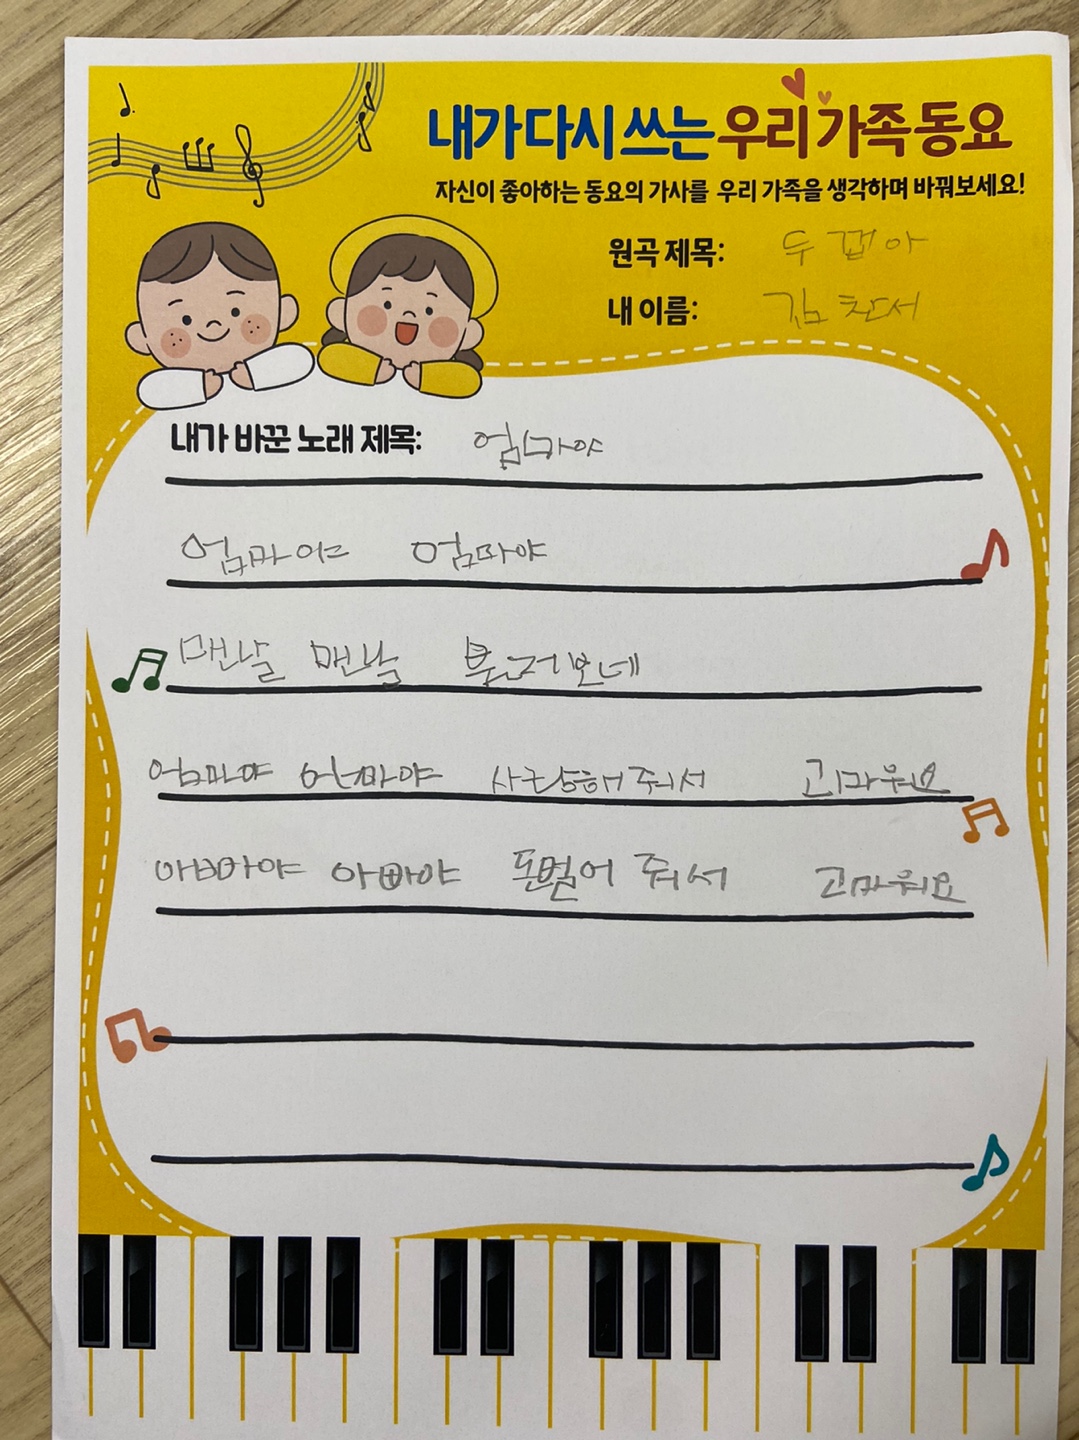 내가 다시 쓰는 우리 가족 동요
자신이 좋아하는 동요의 가사를 우리 가족을 생각하며 바꿔보세요!
원곡 제목: 두껍아
내 이름: 김찬서
내가 바꾼 노래 제목: 엄마야
엄마야 엄마야
맨날 맨날 불러보네
엄마야 엄마야 사랑해줘서 고마워요
아빠야 아빠야 돈벌어 줘서 고마워요